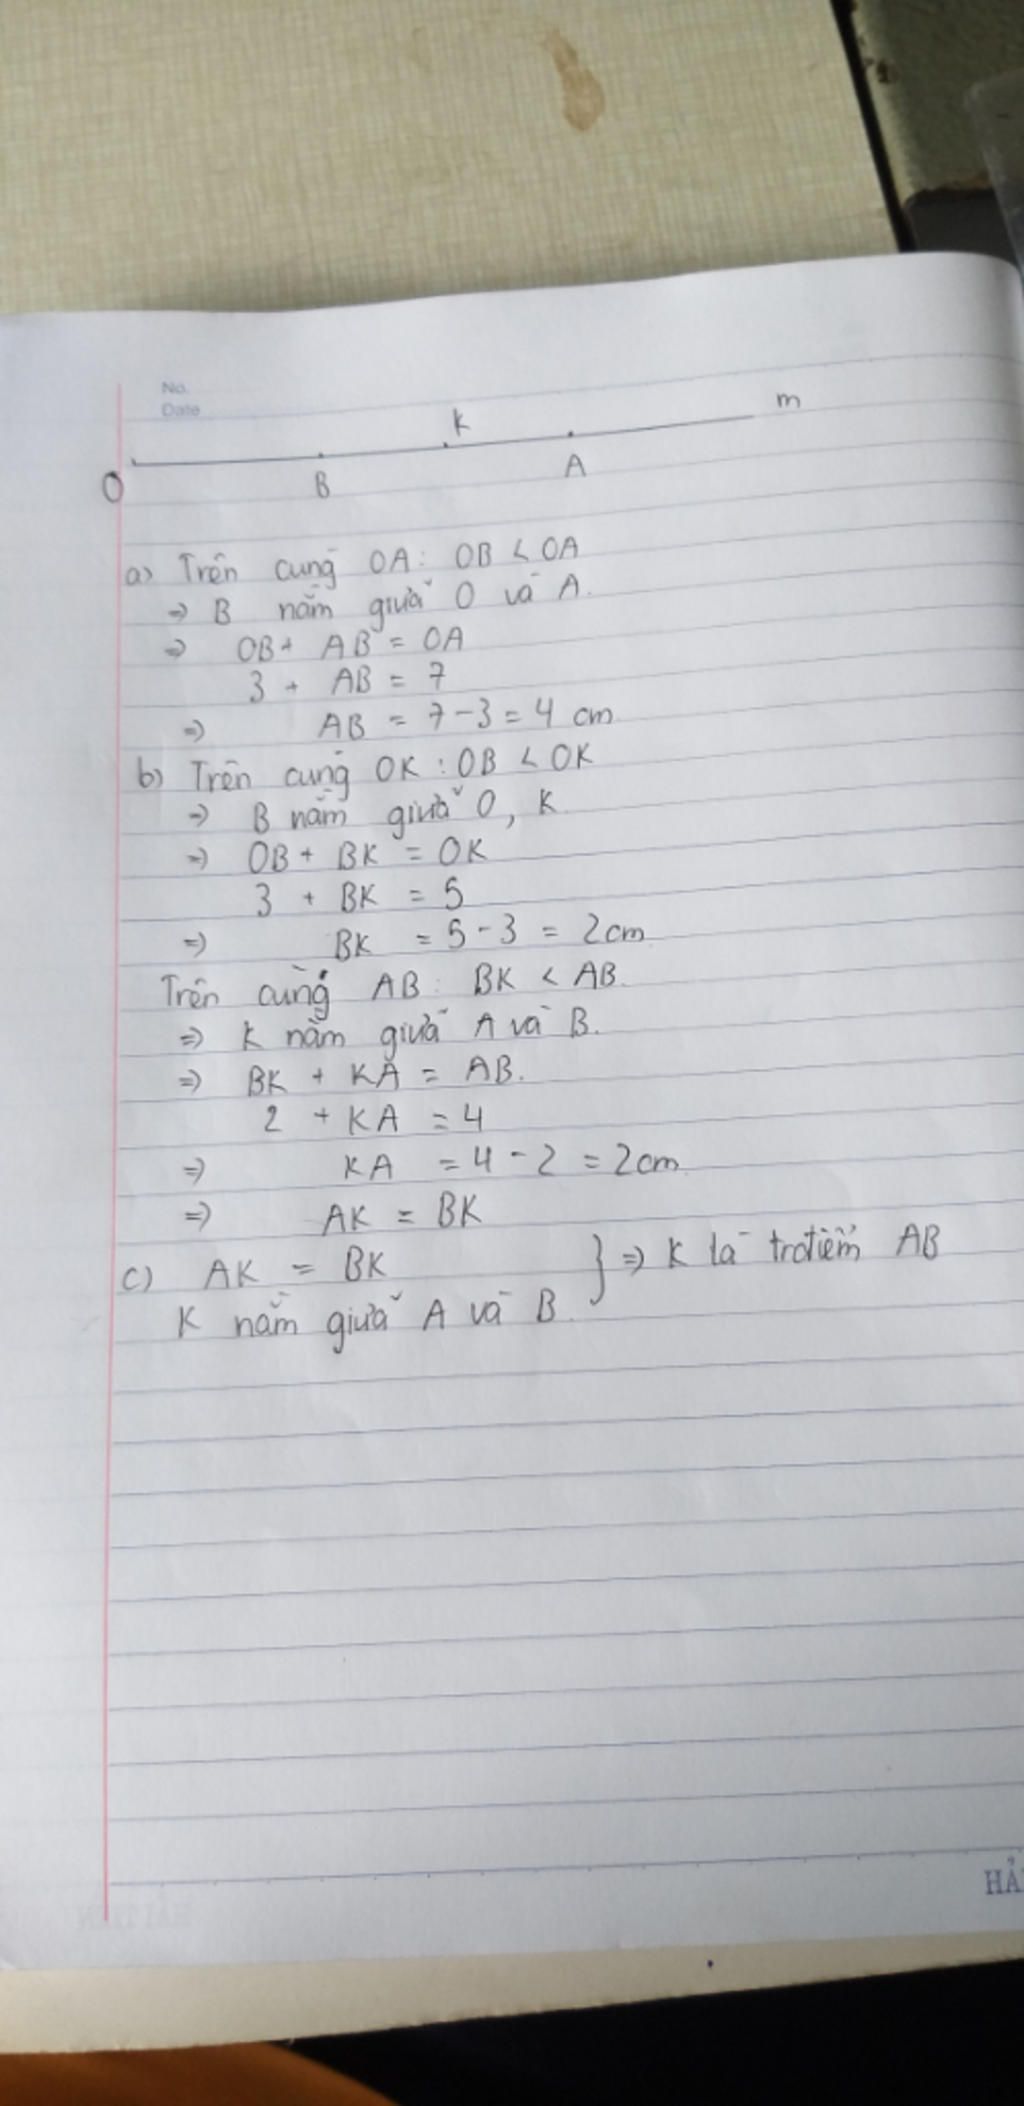 No.
Date
k
m
O
B
A
a) Trên cùng OA: OB < OA
=> B nằm giữa O và A.
=> OB + AB = OA
3 + AB = 7
=> AB = 7 - 3 = 4 cm
b) Trên cùng OK : OB < OK
=> B nằm giữa O, K
=> OB + BK = OK
3 + BK = 5
=> BK = 5 - 3 = 2cm
Trên cùng AB: BK < AB.
=> K nằm giữa A và B.
=> BK + KA = AB.
2 + KA = 4
=> KA = 4 - 2 = 2cm
=> AK = BK
c) AK = BK
K nằm giữa A và B. } => K là trđiểm AB